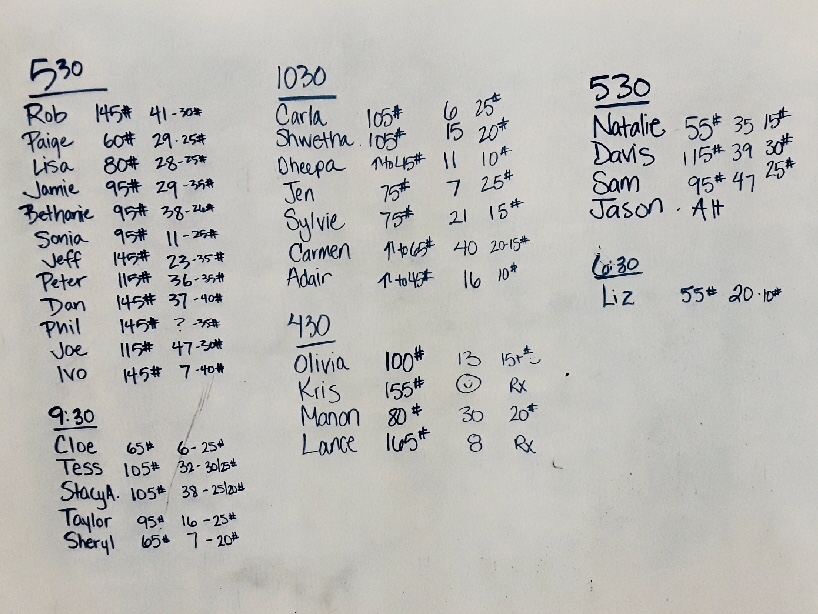 530
Rob 145# 41-30#
Paige 60# 29-25#
Lisa 80# 28-25#
Jamie 95# 29-35#
Bethanie 95# 38-26#
Sonia 95# 11-25#
Jeff 145# 23-35#
Peter 115# 36-35#
Dan 145# 37-40#
Phil 145# ? -35#
Joe 115# 47-30#
Ivo 145# 7-40#
9:30
Cloe 65# 6-25#
Tess 105# 32-30/25#
Stacy A. 105# 38-25/20#
Taylor 95# 16-25#
Sheryl 65# 7-20#
1030
Carla 105# 6 25#
Shwetha 105# 15 20#
Dheepa ↑ to 45# 11 10#
Jen 75# 7 25#
Sylvie 75# 21 15#
Carmen ↑ to 65# 40 20-15#
Adair ↑ to 45# 16 10#
430
Olivia 100# 13 15#
Kris 155# ☺ Rx
Manon 80# 30 20#
Lance 165# 8 Rx
530
Natalie 55# 35 15#
Davis 115# 39 30#
Sam 95# 47 25#
Jason
6:30
Liz 55# 20-10#